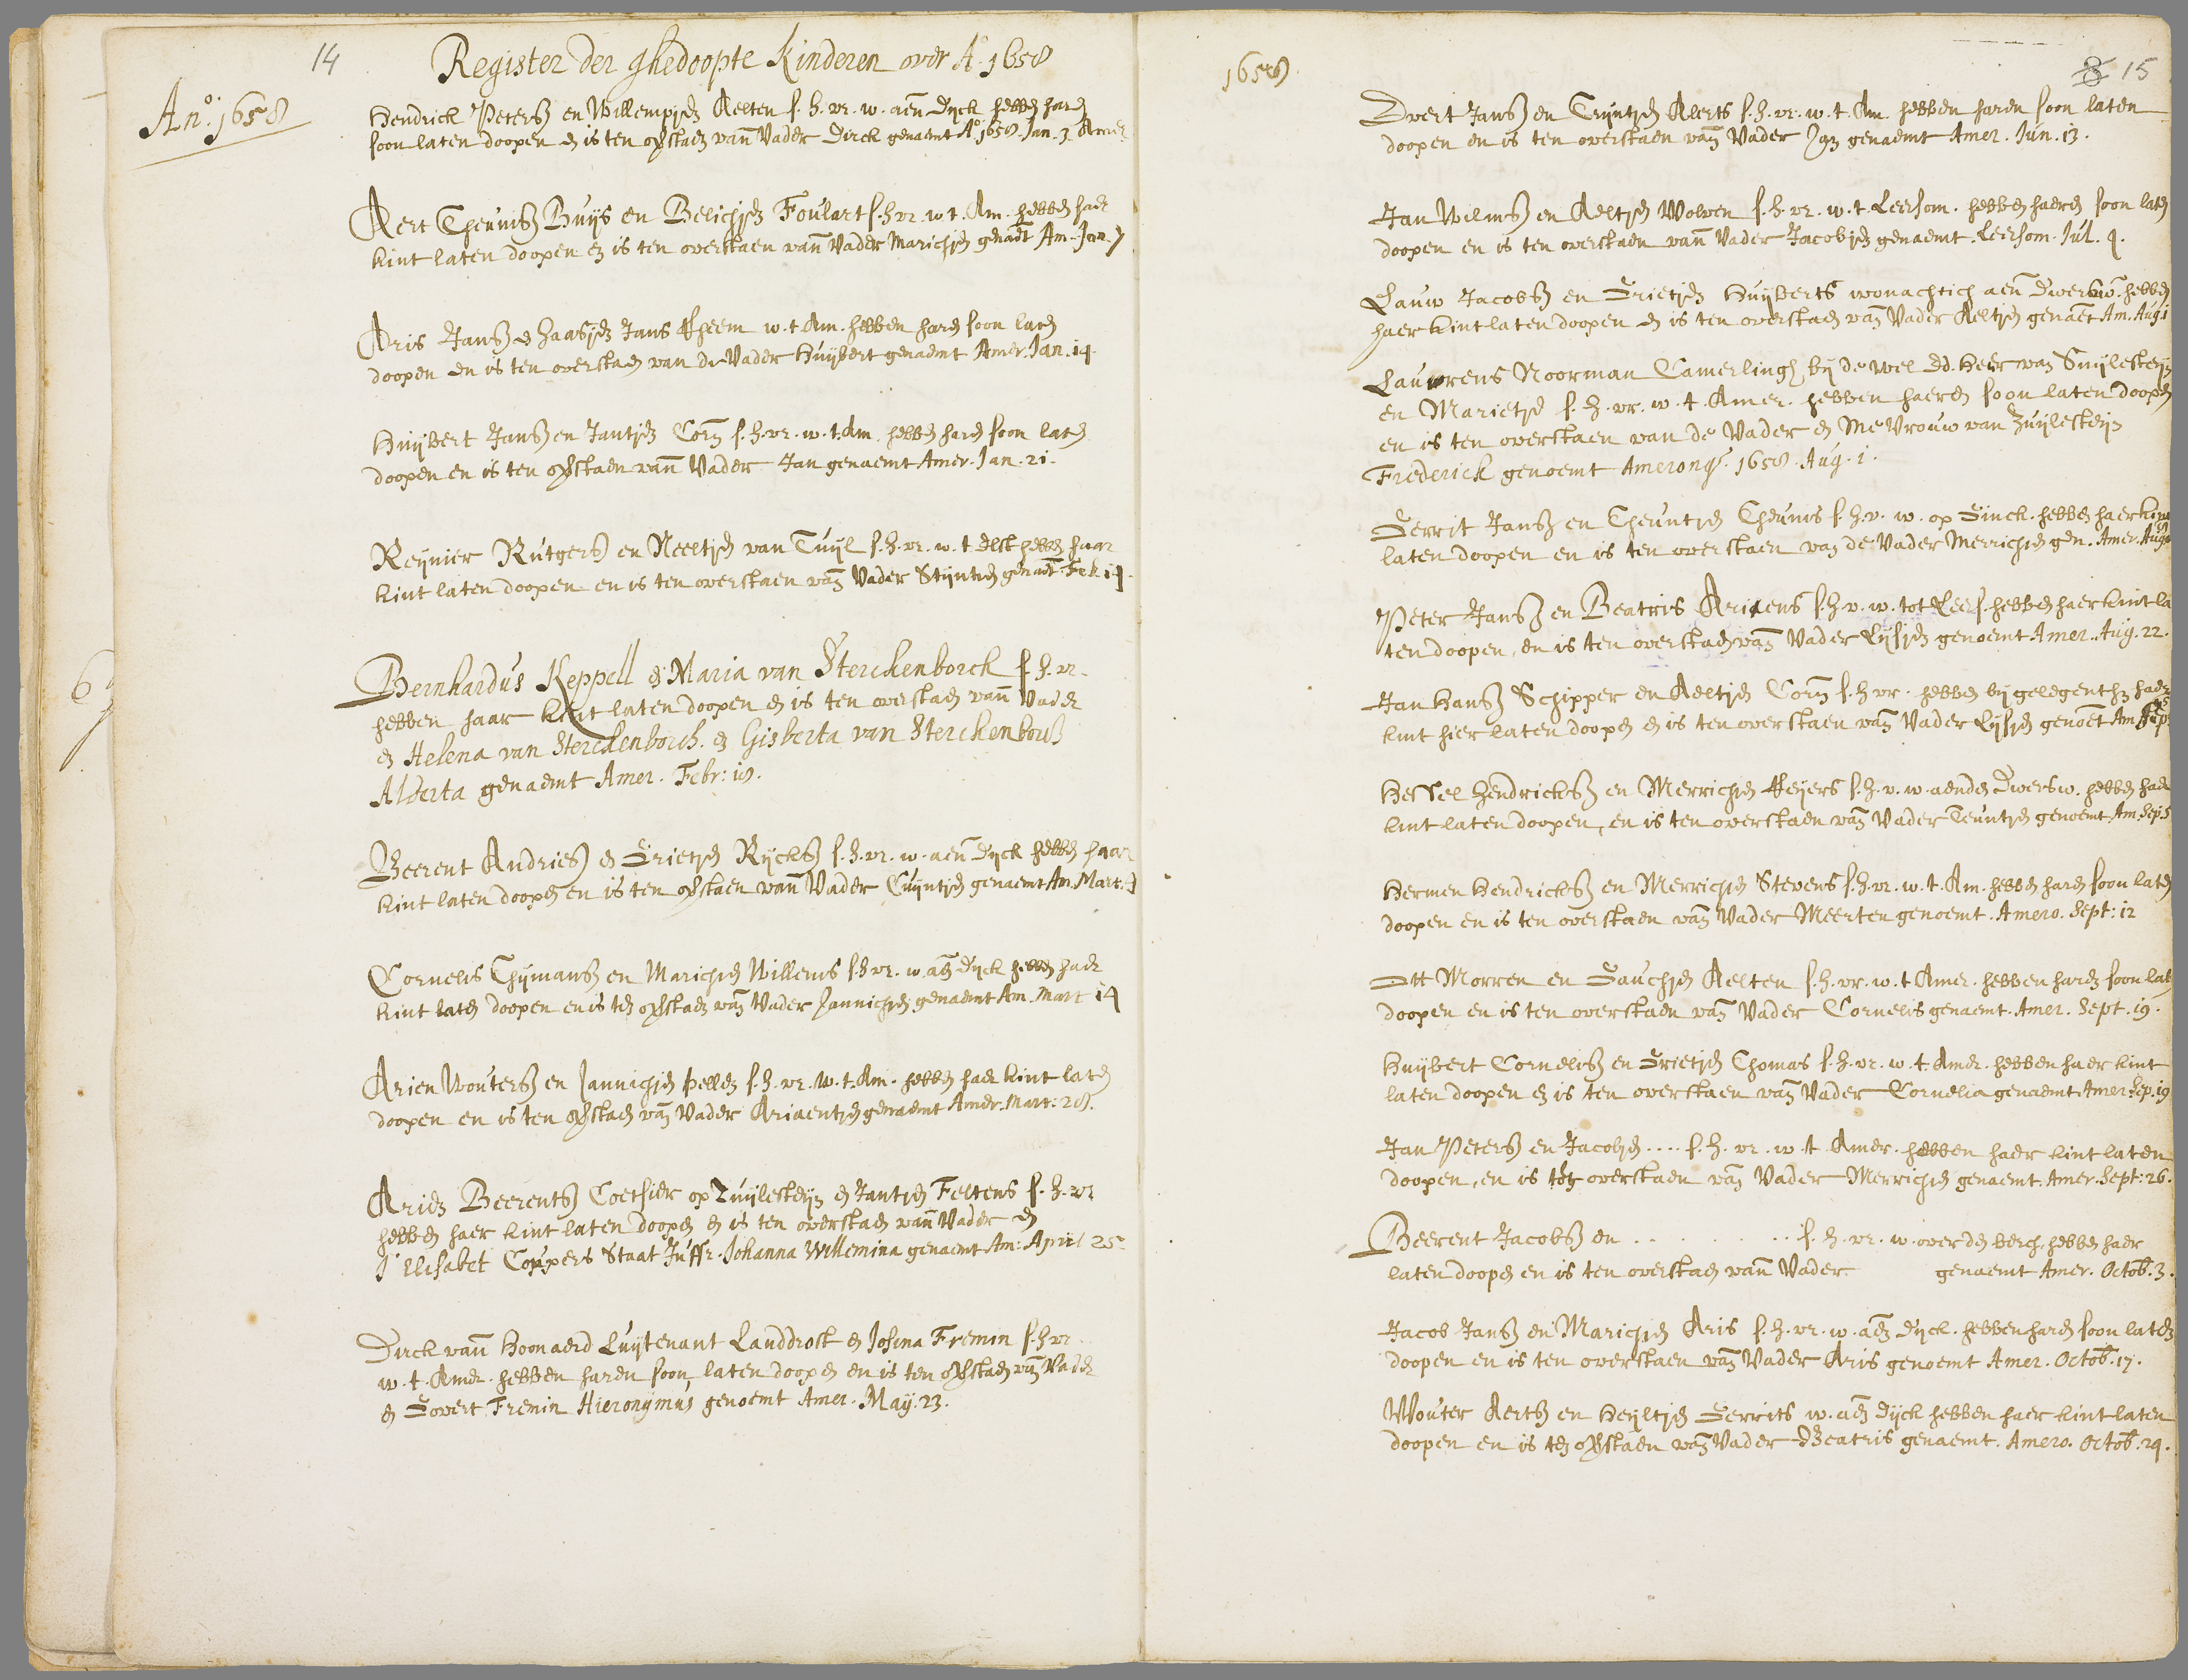 14
Register der ghedoopte Kinderen over Aº 1658
Anº: 1658
Hendrick Peterss en Willempjen Aelten s. h. vr. w. aen Dijck hebben haren
soon laten doopen en is ten overstaen vanden Vader Dirck genaemt Aº 1658 Jan. 3. Amer.
Aert Theuniss Buijs en Belichjen Foulart s. h. vr. w. t. Am. hebben haer
kint laten doopen en is ten overstaen vande Vader Marichjen genaemt Am. Jan. 7
Aris Janss en Haasjen Jans w. t. Am. hebben haren soon laten
doopen en is ten overstaen van de Vader Huijbert genaemt Amer. Jan. 14.
Huijbert Janss en Jantjen Corn s. h. vr. w. t. Am. hebben haren soon laten
doopen en is ten overstaen vande Vader Jan genaemt Amer. Jan. 21.
Reijnier Rutgerss en Neeltjen van Tuijl s. h. vr. w. t. Elst hebben haar
kint laten doopen en is ten overstaen vande Vader Stijntjen genaemt Feb. 14
Bernhardus Keppell en Maria van Sterckenborch s. h. vr.
hebben haar kint laten doopen en is ten overstaen vande Vader
en Helena van Sterckenborch. en Gisberta van Sterckenborch
Alderta genaemt Amer. Febr: 18.
Beerent Andriess en Grietjen Rijckss s. h. vr. w. aen Dijck hebben haar
kint laten doopen en is ten overstaen vande Vader Cuijntjen genaemt Am. Mart. 7
Cornelis Thijmanss en Marichjen Willems s. h. vr. w. aen Dijck hebben haer
kint laten doopen en is ten overstaen vande Vader Jannichjen genaemt Am. Mart 14
Arien Wouterss en Jannichjen Pellen s. h. vr. w. t. Am. hebben haer kint laten
doopen en is ten overstaen vande Vader Ariaentjen genaemt Amer. Mart: 28.
Arien Beerentss Coetsier op Zuijlesteijn en Jantjen Feltens s. h. vr
hebben haer kint laten doopen en is ten overstaen vande Vader en
J' Elisabet Coupers Staat Juffr. Johanna Willemina genaemt Am: April 25
Dirck vande Hoonaerd Luijtenant Landdrost en Josina Fremin s. h. vr.
w. t. Amer. hebben haren soon laten doopen en is ten overstaen vande Vader
en Govert Fremin Hieronijmus genoemt Amer. May. 23.
1658
8 15
Evert Janss en Teuntjen Aelerts s. h. vr. w. t. Am. hebben haren soon laten
doopen en is ten overstaen vande Vader Jan genaemt Amer. Jun. 13.
Jan Wilmss en Aeltjen Wolven s. h. vr. w. t. Leersom. hebben haeren soon laten
doopen en is ten overstaen vande Vader Jacobjen genaemt. Leersom. Jul. 4.
Lauw Jacobss en Grietjen Huijberts wonachtich aen Dwersw. hebben
haer kint laten doopen en is ten overstaen vande Vader Aeltjen genaemt Am. Aug. 1
Lauwrens Noorman Camerlingh bij de wel Ed. Heer van Suijlesteijn
en Marietje s. h. vr. w. t. Amer. hebben haeren soon laten doopen
en is ten overstaen van de Vader en Mevrouw van Zuijlesteijn
Frederick genoemt Amerong. 1658. Aug. 1.
Gerrit Janss en Theuntjen Theunis s. h. v. w. op Ginck. hebben haer kint
laten doopen en is ten overstaen van de Vader Merrichjen gen. Amer. Aug.
Peter Janss en Beatris Ariaens s. h. v. w. tot Leers. hebben haer kint la
ten doopen, en is ten overstaen vande Vader Lijsjen genoemt Amer. Aug. 22.
Jan Hanss Schipper en Aeltjen Corn s. h. vr. hebben bij gelegenth haer
kint hier laten doopen en is ten overstaen vande Vader Lijsjen genoemt Am. Sep.
Hessel Hendrickss en Merrichjen Reijers s. h. v. w. aenden Dwersw. hebben haer
kint laten doopen, en is ten overstaen vande Vader Teuntjen genoemt Am. Sep. 5
Hermen Hendrickss en Merrichjen Stevens s. h. vr. w. t. Am. hebben haren soon laten
doopen en is ten overstaen vande Vader Meerten genoemt. Amero. Sept: 12
Ott Morren en Gauchjen Aelten s. h. vr. w. t Amer. hebben haren soon laten
doopen en is ten overstaen vande Vader Cornelis genaemt. Amer. Sept. 19.
Huijbert Corneliss en Grietjen Thomas s. h. vr. w. t. Amer. hebben haer kint
laten doopen en is ten overstaen vande Vader Cornelia genaemt Amer. Sep. 19
Jan Peterss en Jacobjen .... s. h. vr. w. t Amer. hebben haer kint laten
doopen, en is ten overstaen vande Vader Merrichjen genaemt. Amer. Sept: 26.
Beerent Jacobss en . . . . . . . s. h. vr. w. over den berch, hebben haer
laten doopen en is ten overstaen vande Vader genaemt Amer. Octob. 3.
Jacob Janss en Marichjen Aris s. h. vr. w. aen Dijck. hebben haren soon laten
doopen en is ten overstaen vande Vader Aris genoemt Amer. Octob. 17.
Wouter Aertss en Heijltjen Gerrits w. aen Dijck hebben haer kint laten
doopen en is ten overstaen vande Vader Beatris genaemt. Amero. Octob. 24.